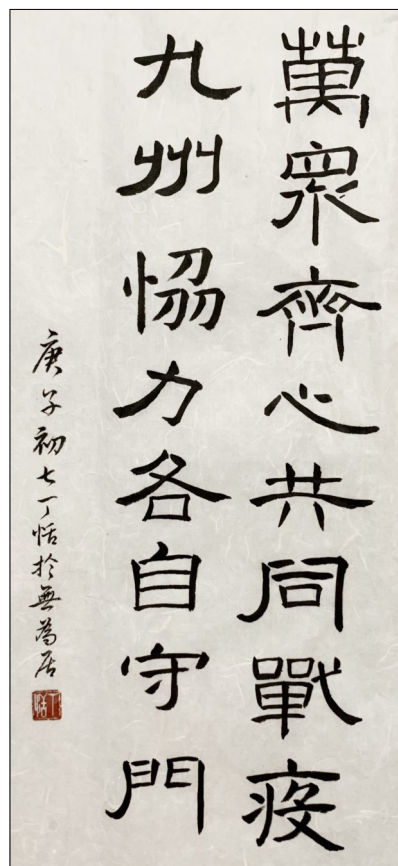 萬眾齊心共同戰疫
九州恊力各自守門
庚子初七丁恬於無為居
丁恬